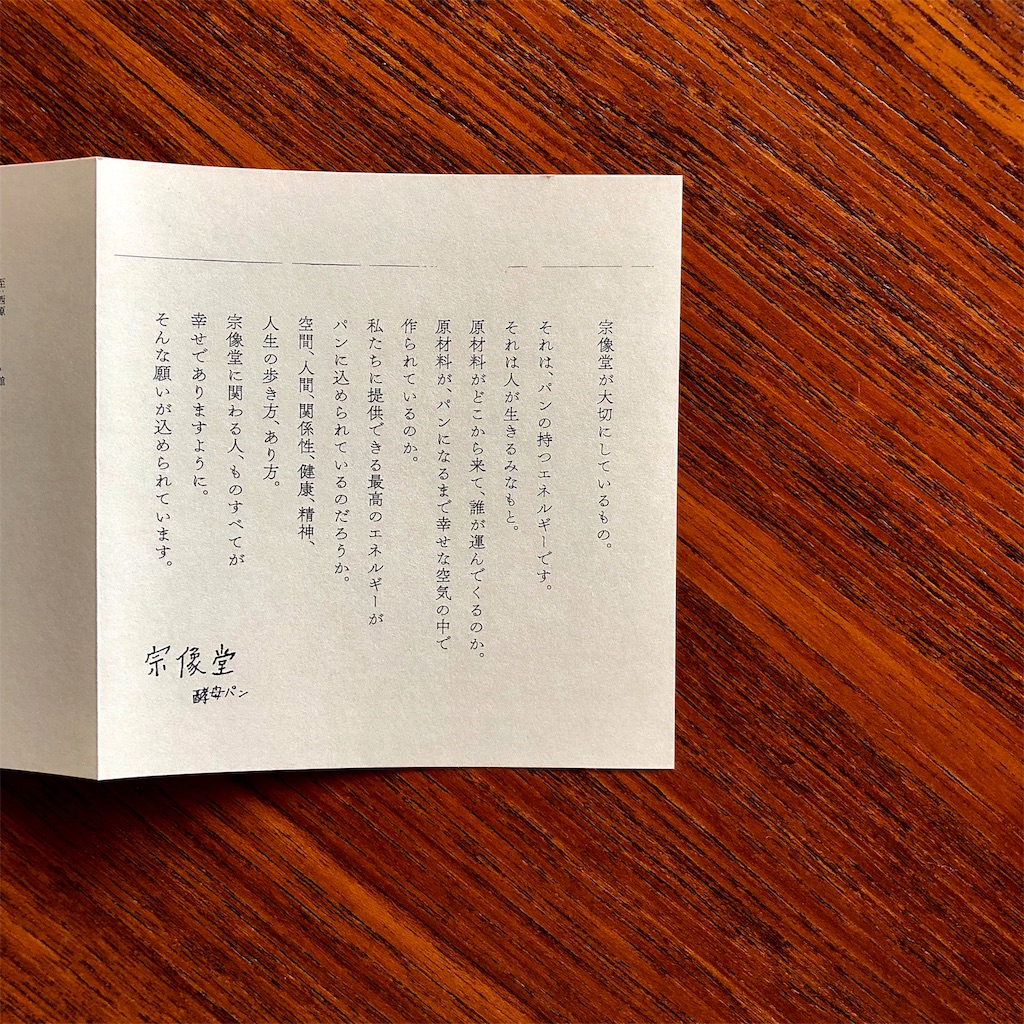 宗像堂が大切にしているもの。
それは、パンの持つエネルギーです。
それは人が生きるみなもと。
原材料がどこから来て、誰が運んでくるのか。
原材料が、パンになるまで幸せな空気の中で
作られているのか。
私たちに提供できる最高のエネルギーが
パンに込められているのだろうか。
空間、人間、関係性、健康、精神、
人生の歩き方、あり方。
宗像堂に関わる人、ものすべてが
幸せでありますように。
そんな願いが込められています。
宗像堂
酵母パン
至 西原
館